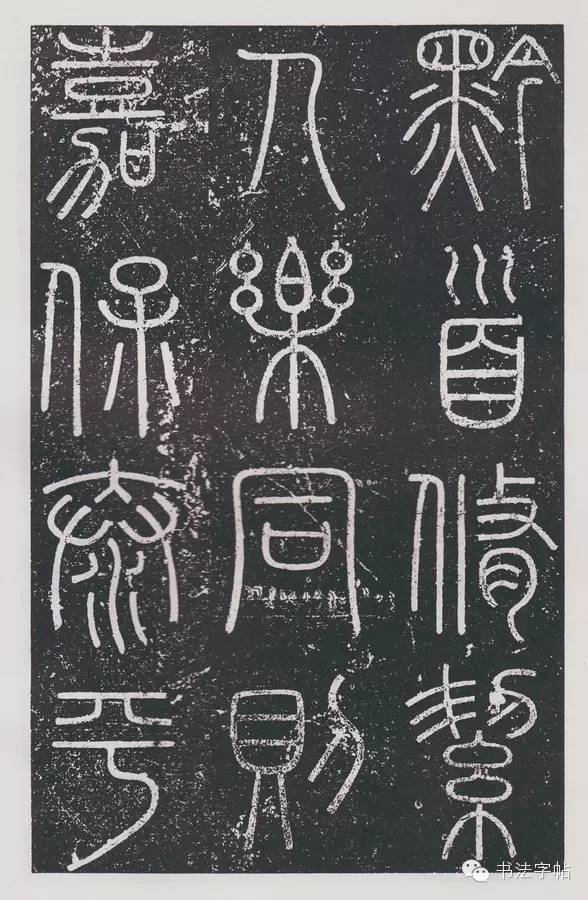 黔首脩絜
人樂同則
嘉保泰平
书法字帖